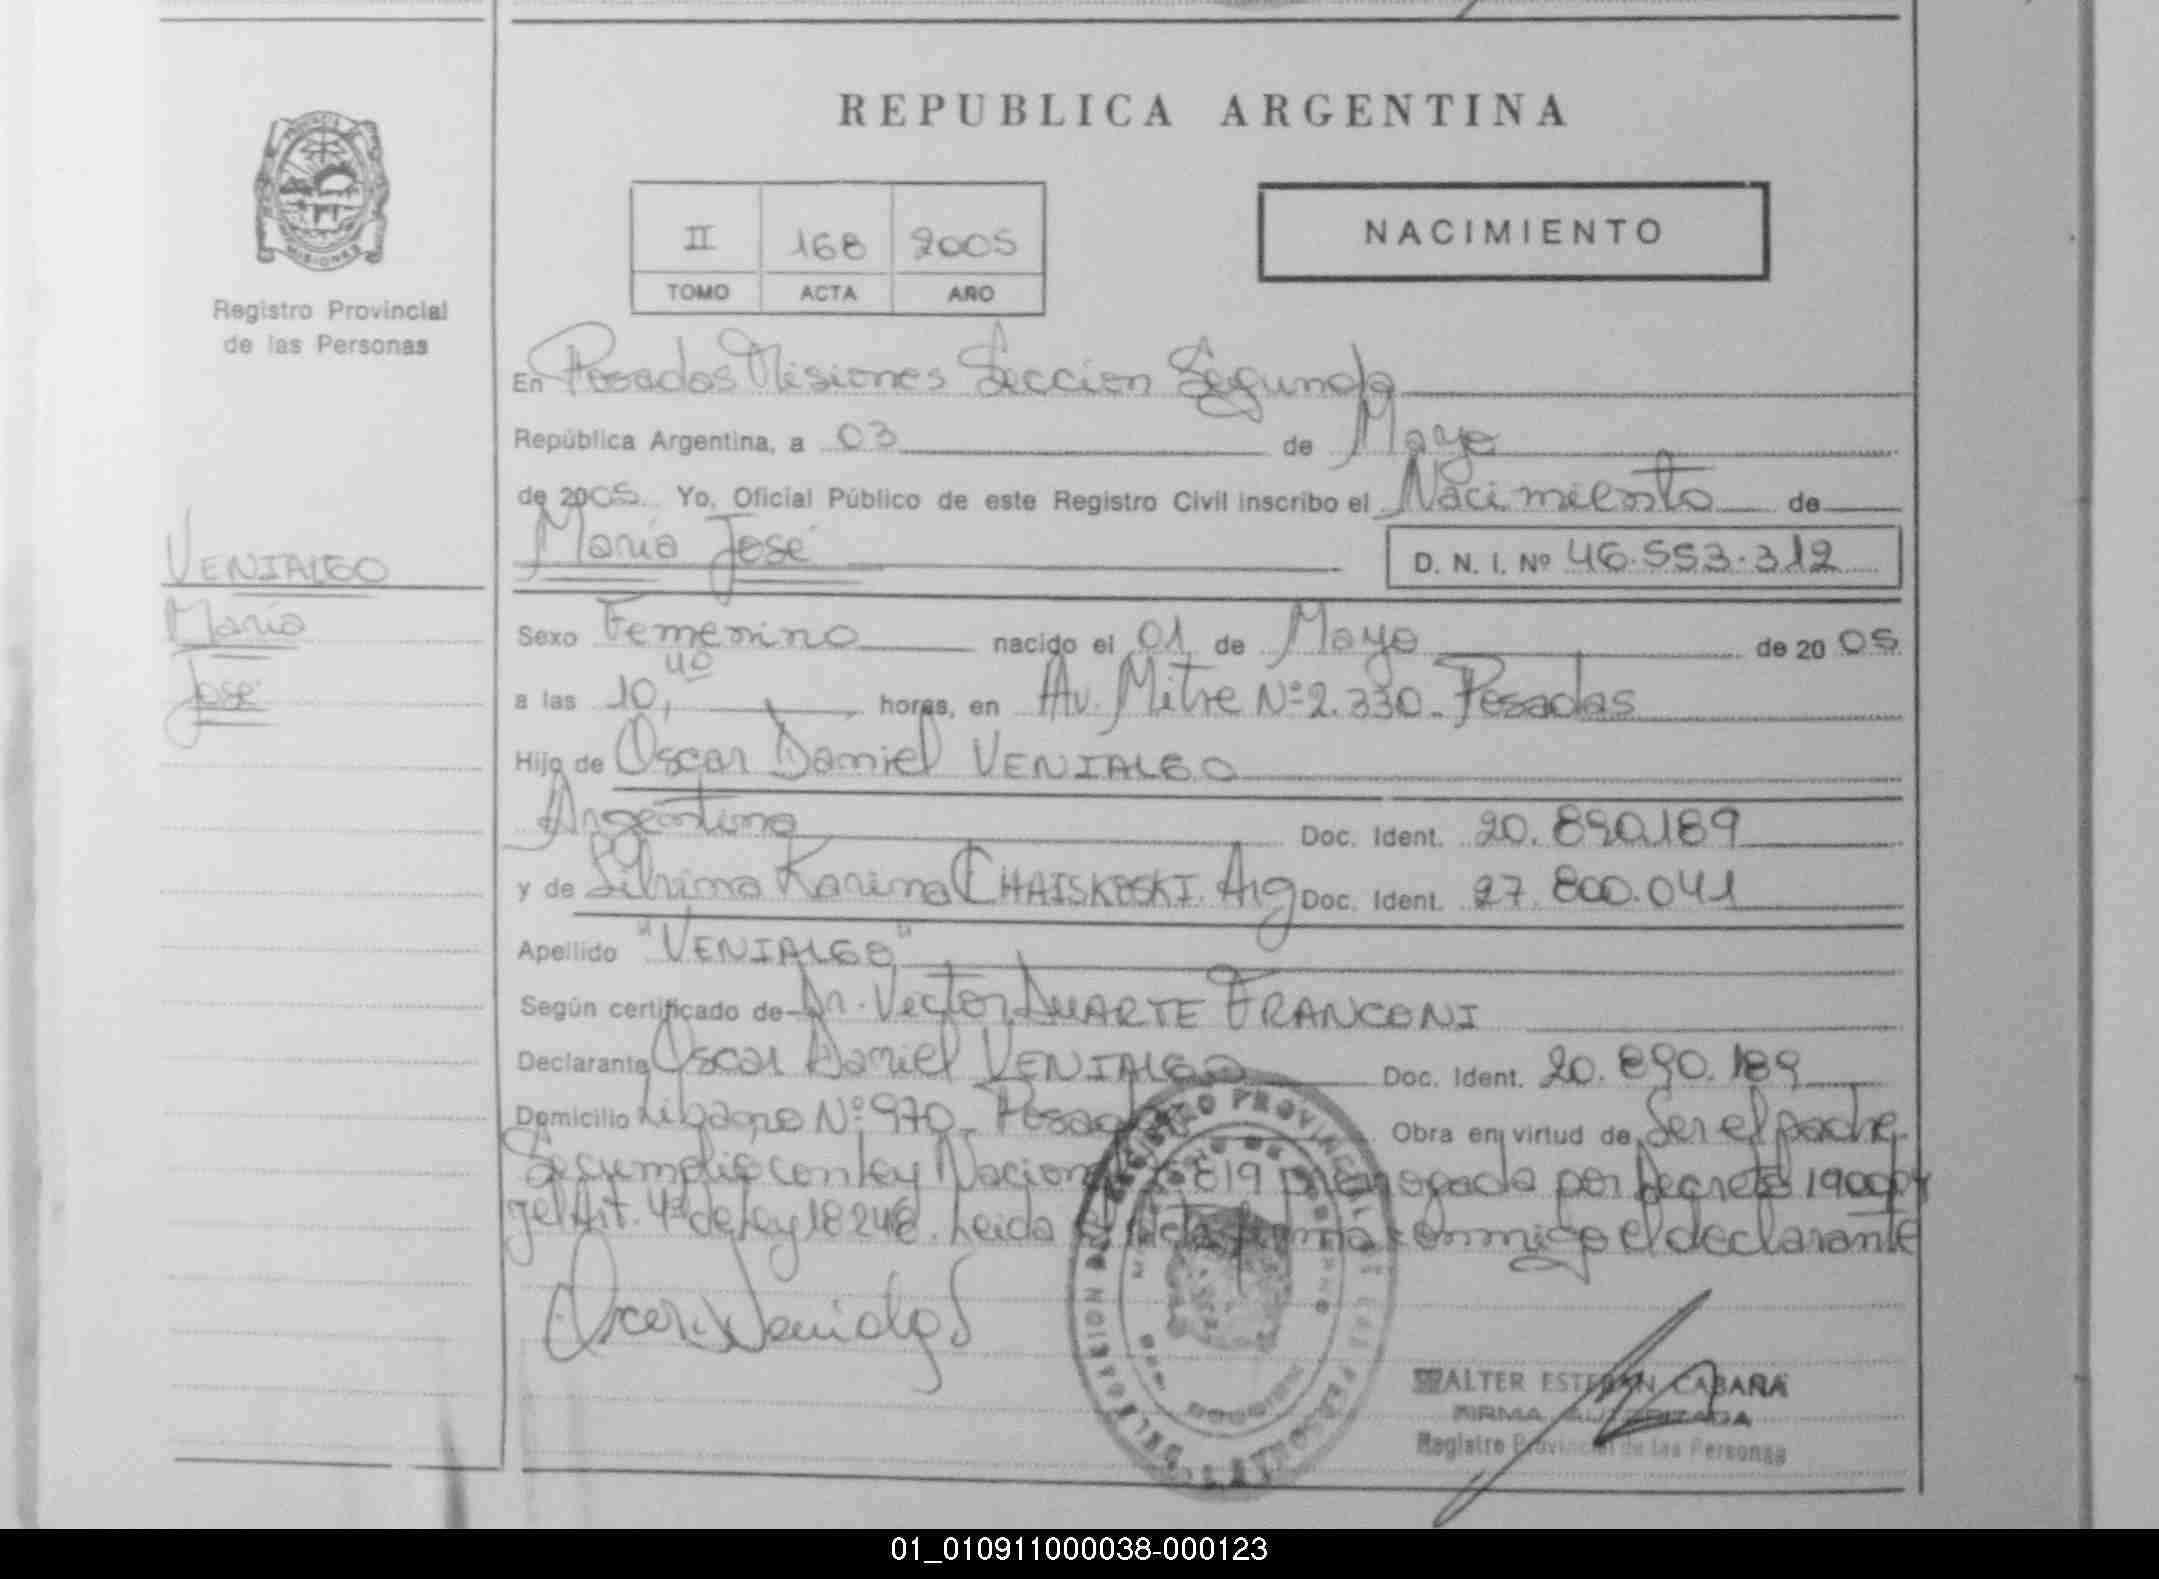 REPUBLICA ARGENTINA
NACIMIENTO
II 168 2005
TOMO ACTA AÑO
PROVINCIA
MISIONES
Registro Provincial
de las Personas
VENIALGO
María
José
En Posadas Misiones Sección Segunda
República Argentina, a 03 de Mayo
de 2005. Yo, Oficial Público de este Registro Civil inscribo el Nacimiento de
María José
D. N. I. Nº 46.553.312
Sexo Femenino nacido el 01 de Mayo de 2005
a las 10,40 horas, en Av. Mitre Nº 2.330 - Posadas
Hijo de Oscar Daniel VENIALGO
Argentino Doc. Ident. 20.890.189
y de Silvina Karina CHAISKOSKI. Arg Doc. Ident. 27.800.041
Apellido "VENIALGO"
Según certificado de Dr. Vector DUARTE FRANCONI
Declarante Oscar Daniel VENIALGO Doc. Ident. 20.890.189
Domicilio Libano Nº 970 - Obra en virtud de Ser el padre.
Se cumplio con ley 819 prorrogada por Decreto
y el Art. 4º de ley 18248. Leida firma conmigo el declarante
Oscar Venialgo
WALTER ESTEBAN CABAÑA
FIRMA AUTORIZADA
Registro Provincial de las Personas
REGISTRO PROVINCIAL DE LAS PERSONAS
01_010911000038-000123